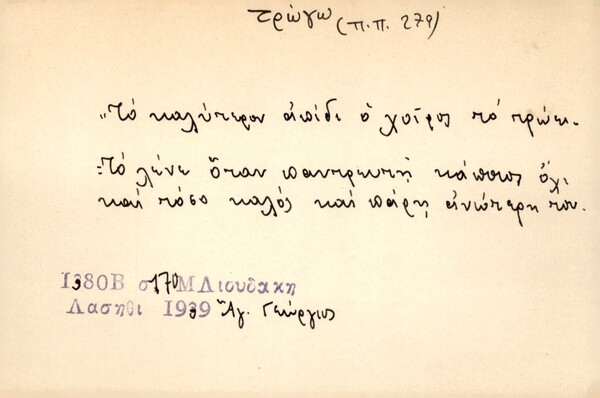 τρώγω (π.π. 279)
"Τό καλύτερον ἀπίδι ὁ χοῖρος τό τρώει.
:Τό λένε ὅταν παντρευτῇ κάποιος ὄχι
καί τόσο καλός καί πάρῃ ἀνώτερη του.
1380Β σ 170 Μ Λιουδακη
Λασηθι 1939 Ἅγ. Γεώργιος